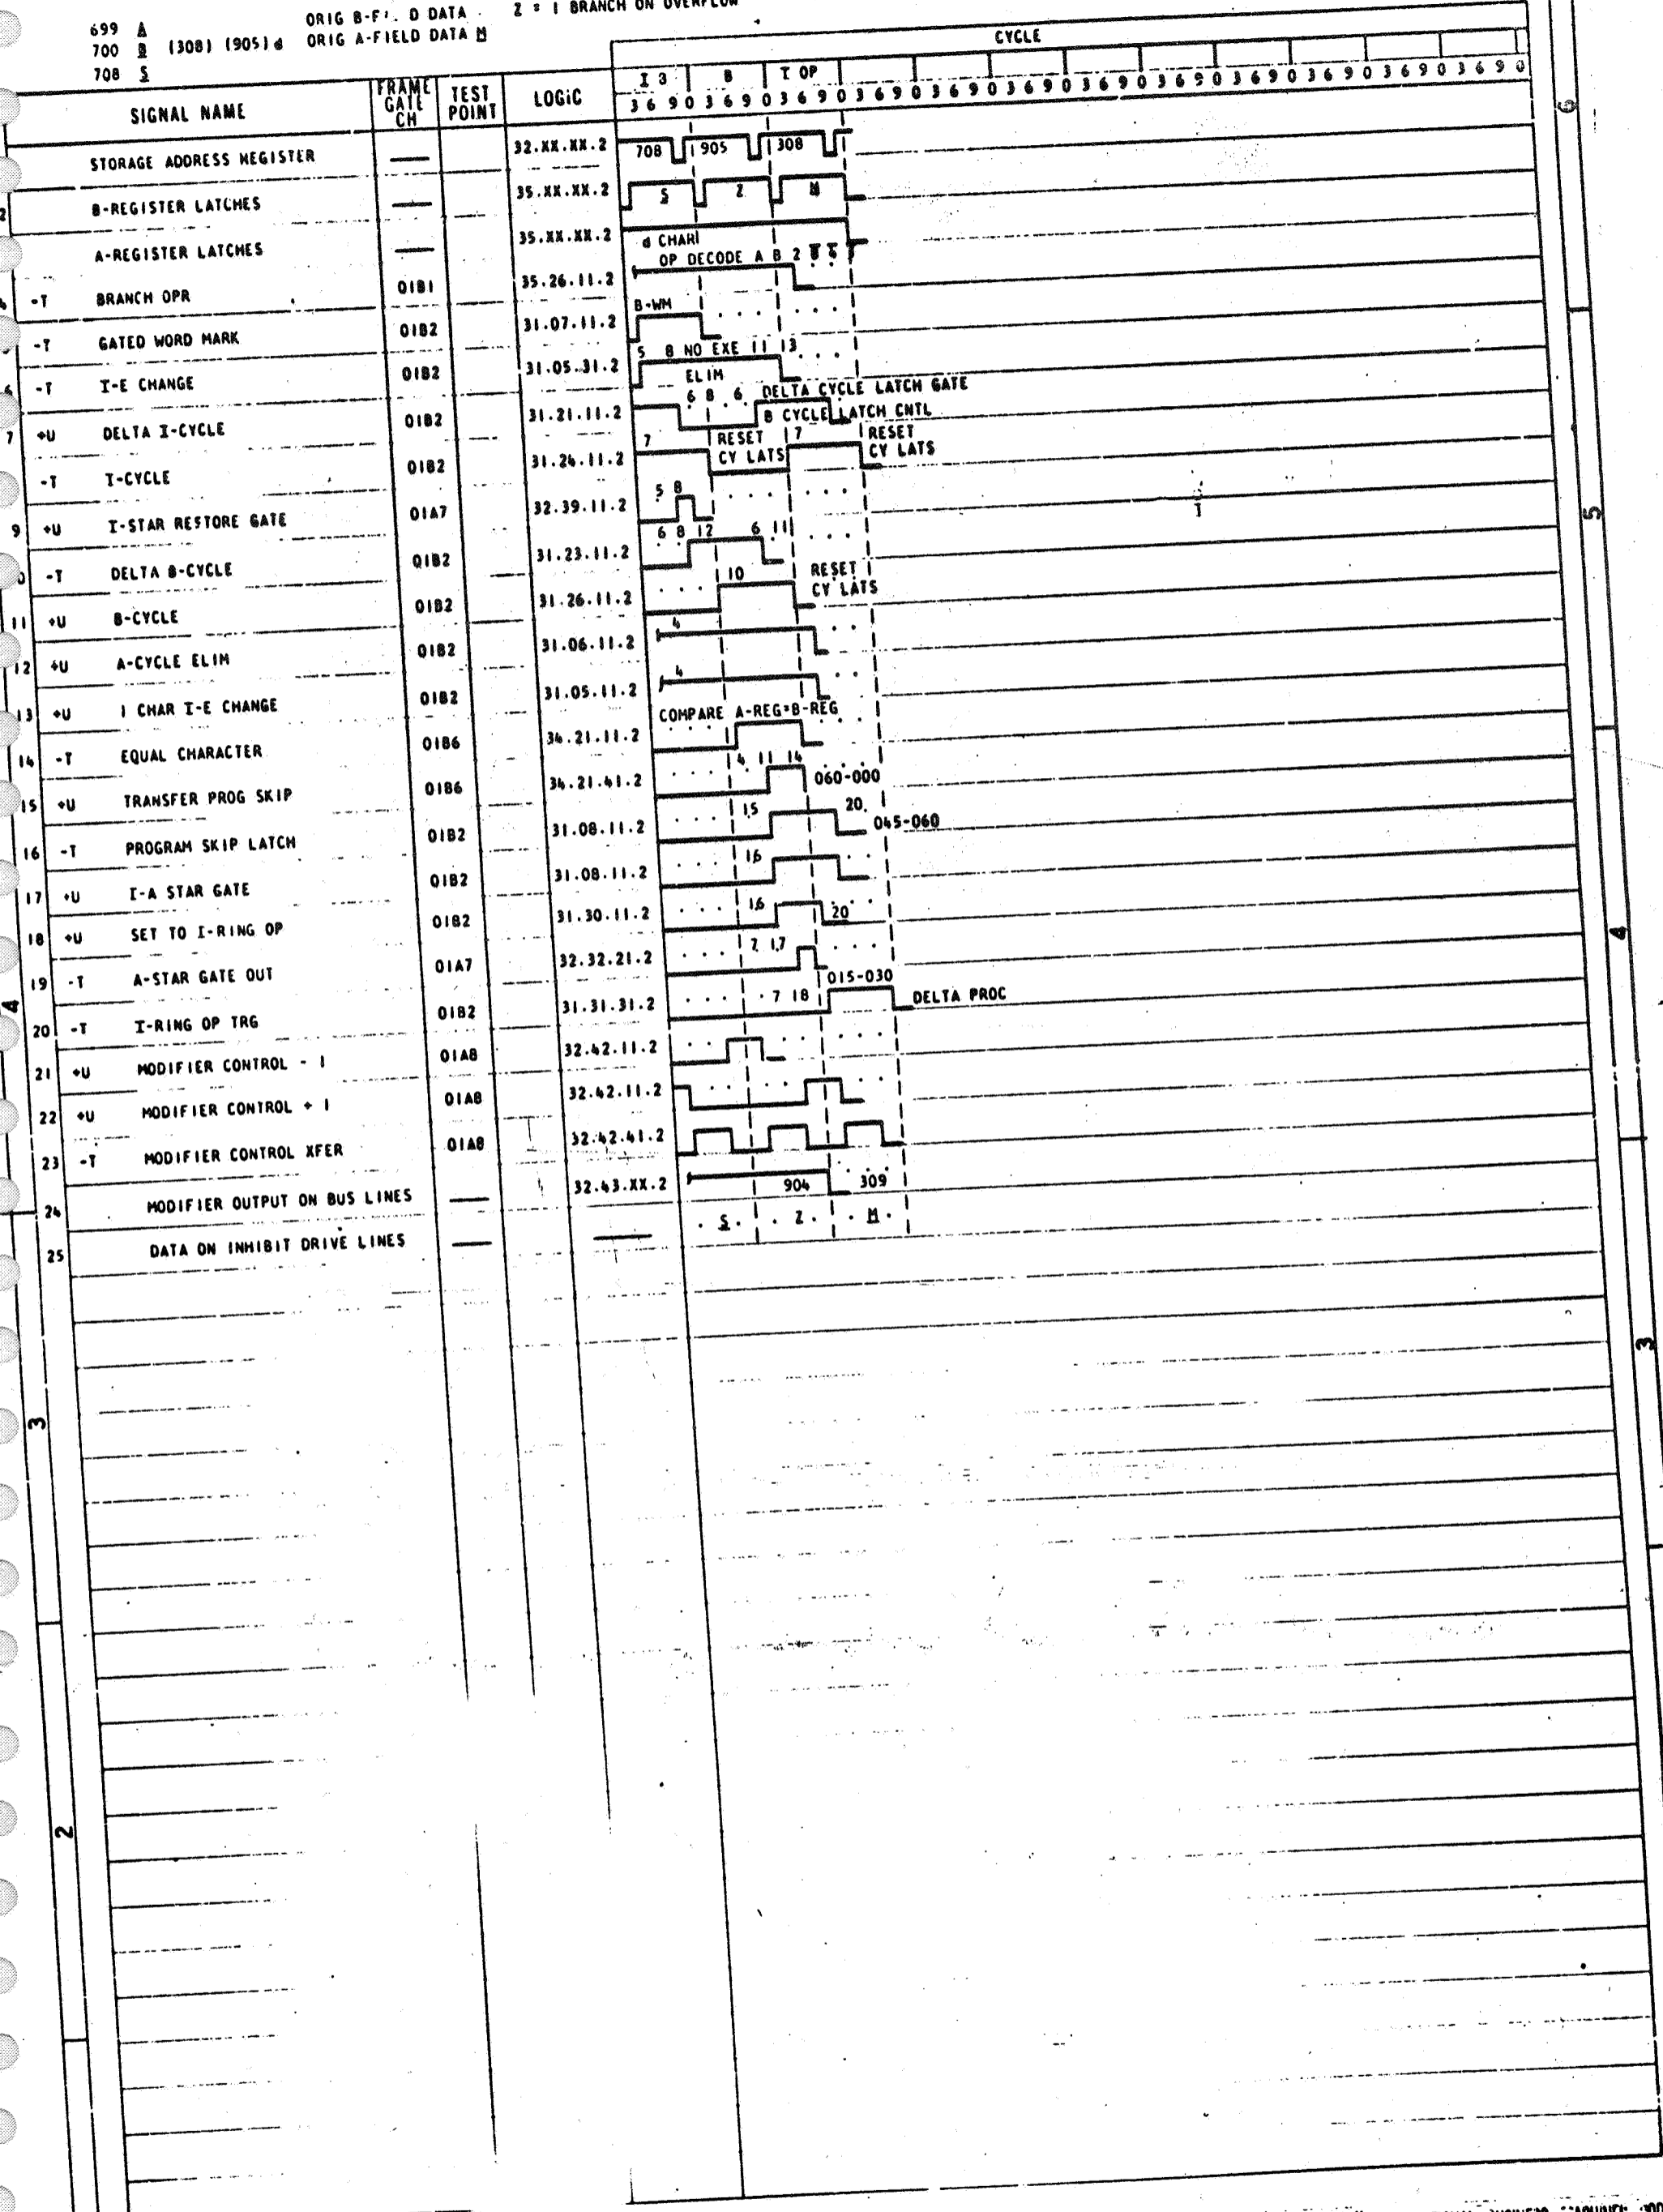 ORIG B-F D DATA Z = 1 BRANCH ON OVERFLOW
699 A
700 B (308) (905) d ORIG A-FIELD DATA M
708 S
CYCLE
I 3 B I OP
SIGNAL NAME FRAME GATE CH TEST POINT LOGIC 3 6 9 0 3 6 9 0 3 6 9 0 3 6 9 0 3 6 9 0 3 6 9 0 3 6 9 0 3 6 9 0 3 6 9 0 3 6 9 0 3 6 9 0 3 6 9 0
STORAGE ADDRESS REGISTER — 32.XX.XX.2 708 905 308
2 B-REGISTER LATCHES — 35.XX.XX.2 S Z M
A-REGISTER LATCHES — 35.XX.XX.2 d CHAR
OP DECODE A B 2
-T BRANCH OPR 01B1 35.26.11.2
B-WM
-T GATED WORD MARK 01B2 31.07.11.2
5 8 NO EXE 11 13
6 -T I-E CHANGE 01B2 31.05.31.2 ELIM
6 8 6 DELTA CYCLE LATCH GATE
7 +U DELTA I-CYCLE 01B2 31.21.11.2 B CYCLE LATCH CNTL
7 RESET 7 RESET
-T I-CYCLE 01B2 31.24.11.2 CY LATS CY LATS
5 8
9 +U I-STAR RESTORE GATE 01A7 32.39.11.2
6 8 12 6 11
-T DELTA B-CYCLE 01B2 31.23.11.2
10 RESET
11 +U B-CYCLE 01B2 31.26.11.2 CY LATS
4
12 +U A-CYCLE ELIM 01B2 31.06.11.2
4
13 +U 1 CHAR I-E CHANGE 01B2 31.05.11.2
COMPARE A-REG=B-REG
14 -T EQUAL CHARACTER 01B6 34.21.11.2
4 11 14
15 +U TRANSFER PROG SKIP 01B6 34.21.41.2 060-000
15 20
16 -T PROGRAM SKIP LATCH 01B2 31.08.11.2 045-060
16
17 +U I-A STAR GATE 01B2 31.08.11.2
16
18 +U SET TO I-RING OP 01B2 31.30.11.2 20
7 17
19 -T A-STAR GATE OUT 01A7 32.32.21.2
015-030
20 -T I-RING OP TRG 01B2 31.31.31.2 7 18 DELTA PROC
21 +U MODIFIER CONTROL - 1 01A8 32.42.11.2
22 +U MODIFIER CONTROL + 1 01A8 32.42.11.2
23 -T MODIFIER CONTROL XFER 01A8 32.42.41.2
24 MODIFIER OUTPUT ON BUS LINES — 32.43.XX.2 904 309
25 DATA ON INHIBIT DRIVE LINES — — S Z M
6
5
4
3
4
3
2